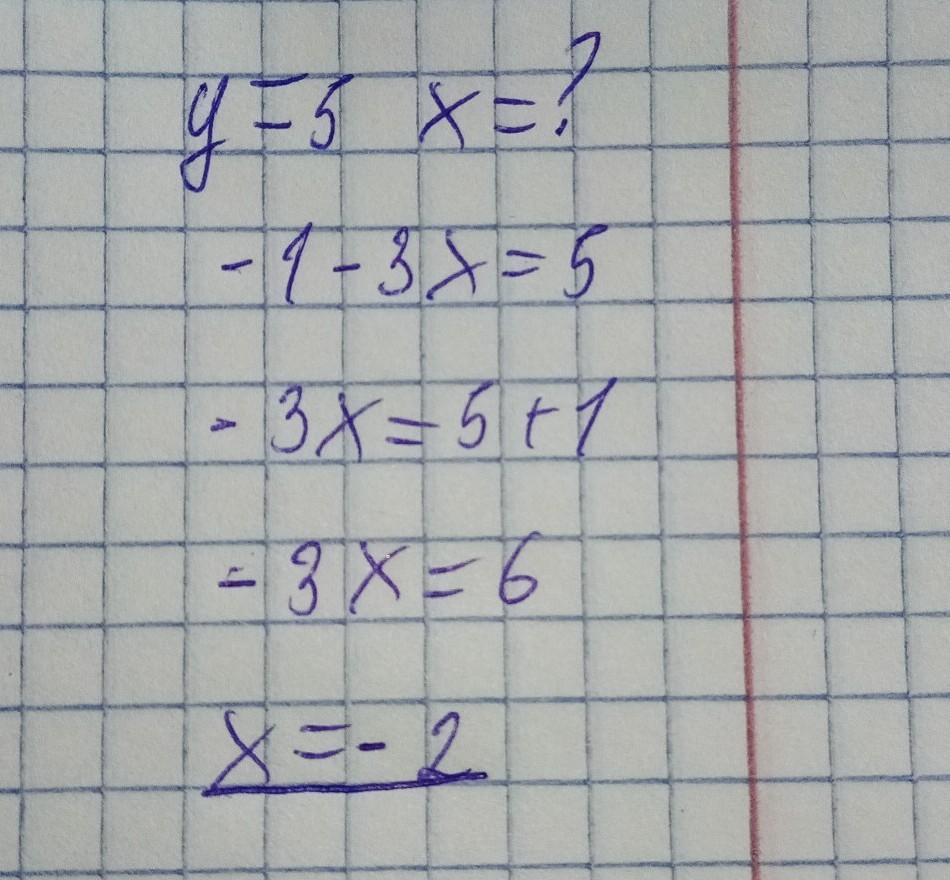 y = 5 x = ?
- 1 - 3x = 5
- 3x = 5 + 1
- 3x = 6
x = - 2